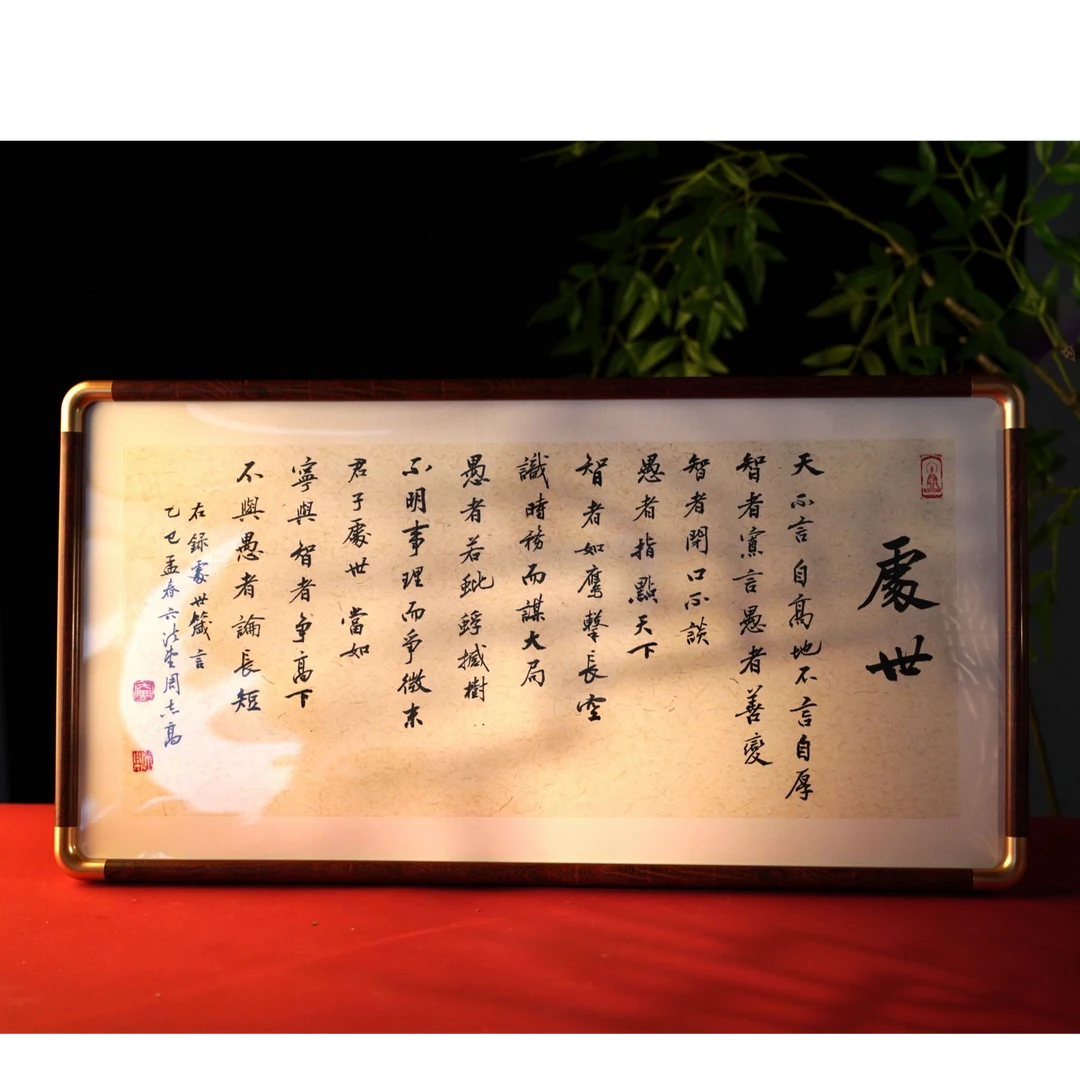 處世
天不言自高地不言自厚
智者寡言愚者善變
智者閉口不談
愚者指點天下
智者如鷹擊長空
識時務而謀大局
愚者若蚍蜉撼樹
不明事理而爭微末
君子處世當如
寧與智者爭高下
不與愚者論長短
右録處世箴言
乙巳孟春六法堂周志高